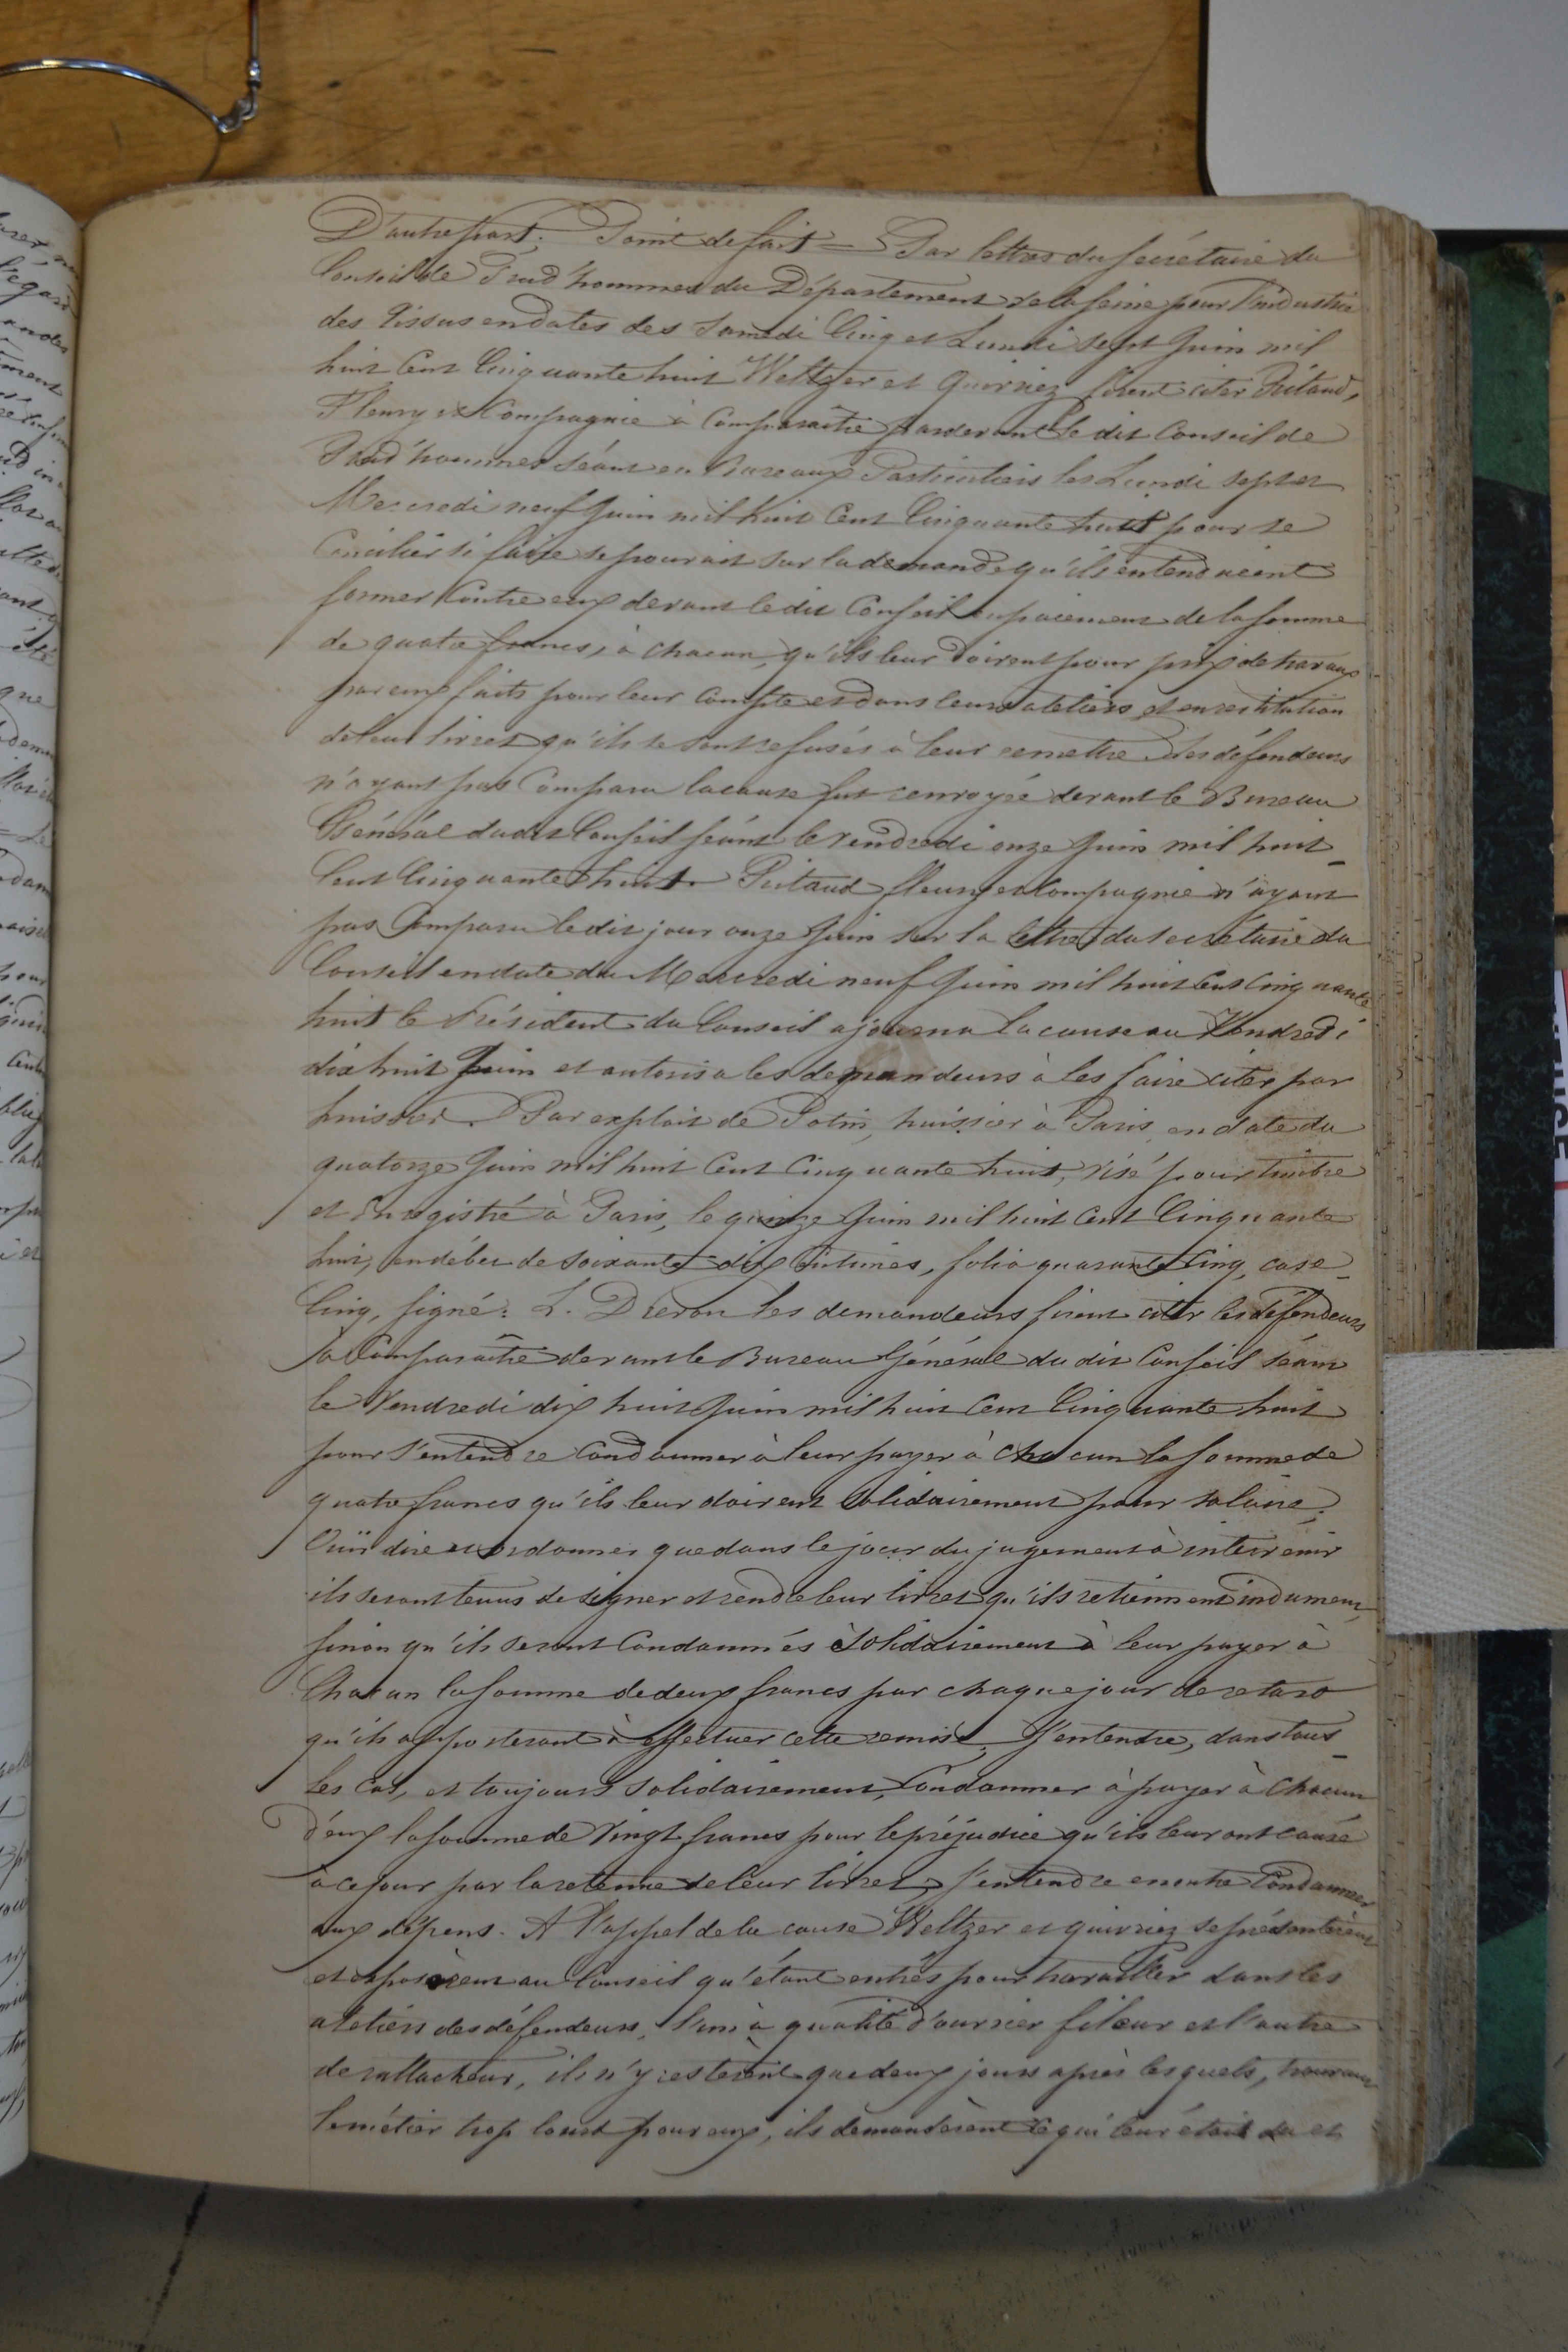 D'autre part; Point de fait = Par lettres du secrétaire du
Conseil de Prud'hommes du Département de la Seine pour l'industrie
des Tissus en dates des Samedi cinq et Lundi sept Juin mil
huit cent cinquante huit Weltzer et Quirriez firent citer Pritaud,
Fleury et Compagnie à comparaître par devant le dit Conseil de
Prud'hommes séant en Bureaux Particuliers les Lundi sept et
Mercredi neuf Juin mil huit cent cinquante huit pour se
concilier si faire se pouvait sur la demande qu'ils entendaient
former contre eux devant le dit Conseil en paiement de la somme
de quatre francs, à chacun, qu'ils leur doivent pour prix de travaux
par eux faits pour leur compte et dans leurs ateliers et en restitution
de leur livret qu'ils se sont refusés à leur remettre. Les défendeurs
n'ayant pas comparu la cause fut renvoyée devant le Bureau
Général dudit Conseil séant le vendredi onze Juin mil huit
cent cinquante huit. Pritaud fleury et Compagnie n'ayant
pas comparu le dit jour onze Juin sur la lettre du secrétaire du
Conseil en date du Mercredi neuf Juin mil huit cent cinquante
huit le Président du Conseil ajourna la cause au Vendredi
dix huit Juin et autorisa les demandeurs à les faire citer par
huissier. Par exploit de Potin, huissier à Paris, en date du
quatorze Juin mil huit cent cinquante huit, visé pour timbre
et Enregistré à Paris, le quinze Juin mil huit cent cinquante
huit, en débet de soixante dix centimes, folio quarante cinq, case
cinq, signé: L. Dreron les demandeurs firent citer les défendeurs
à comparaître devant le Bureau Général du dit Conseil séant
le Vendredi dix huit Juin mil huit cent cinquante huit
pour s'entendre condamner à leur payer à chacun la somme de
quatre francs qu'ils leur doivent solidairement pour salaire;
Ouïr dire et ordonner que dans le jour du jugement à intervenir
ils seront tenus de signer et rendre leur livret qu'ils retiennent indument,
sinon qu'ils seront condamnés solidairement à leur payer à
chacun la somme de deux francs par chaque jour de retard
qu'ils apporteront à effectuer cette remise; S'entendre, dans tous
les cas, et toujours solidairement, condamner à payer à chacun
d'eux la somme de vingt francs pour le préjudice qu'ils leur ont causé
à ce jour par la retenue de leur livret; s'entendre en outre condamner
aux dépens. A l'appel de la cause Weltzer et Quirriez se présentèrent
et exposèrent au Conseil qu'étant entrés pour travailler dans les
ateliers des défendeurs, l'un à qualité d'ouvrier fileur et l'autre
de rattacheur, ils n'y restèrent que deux jours après lesquels, trouvant
le métier trop lourd pour eux, ils demandèrent ce qui leur était du et